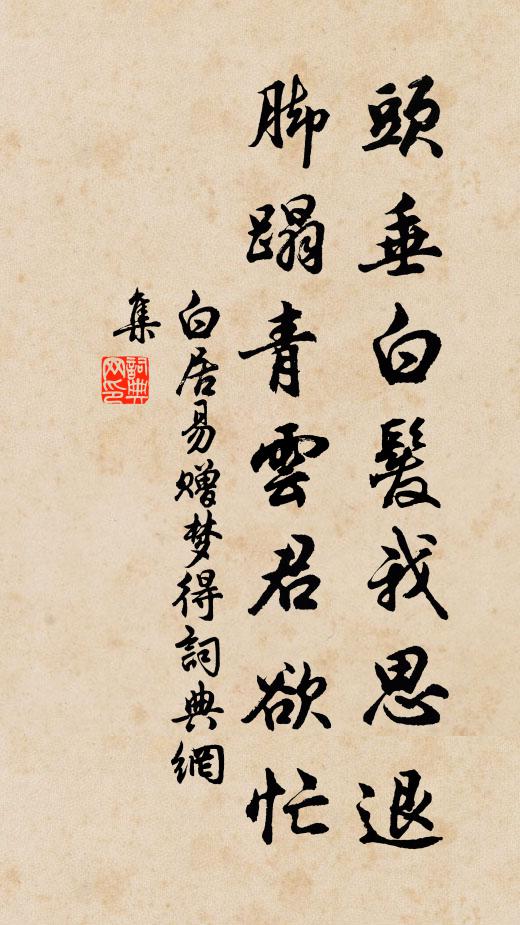 頭垂白髮我思退
脚蹋青雲君欲忙
白居易赠梦得詞典網
集
詞典网印